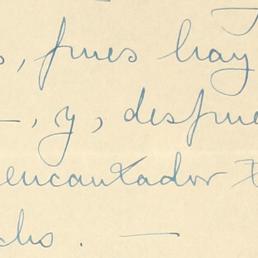 s, pues hay
—, y, despué
encantador
cho. —